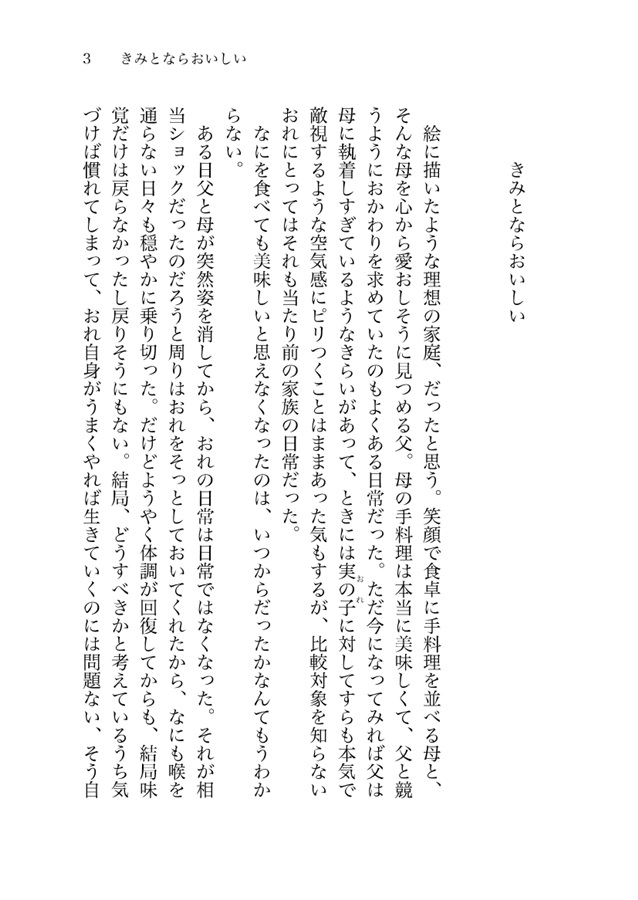 3 きみとならおいしい
きみとならおいしい
絵に描いたような理想の家庭、だったと思う。笑顔で食卓に手料理を並べる母と、
そんな母を心から愛おしそうに見つめる父。母の手料理は本当に美味しくて、父と競
うようにおかわりを求めていたのもよくある日常だった。ただ今になってみれば父は
母に執着しすぎているようなきらいがあって、ときには実の子に対してすらも本気で
おれ
敵視するような空気感にピリつくことはままあった気もするが、比較対象を知らない
おれにとってはそれも当たり前の家族の日常だった。
なにを食べても美味しいと思えなくなったのは、いつからだったかなんてもうわか
らない。
ある日父と母が突然姿を消してから、おれの日常は日常ではなくなった。それが相
当ショックだったのだろうと周りはおれをそっとしておいてくれたから、なにも喉を
通らない日々も穏やかに乗り切った。だけどようやく体調が回復してからも、結局味
覚だけは戻らなかったし戻りそうにもない。結局、どうすべきかと考えているうち気
づけば慣れてしまって、おれ自身がうまくやれば生きていくのには問題ない、そう自